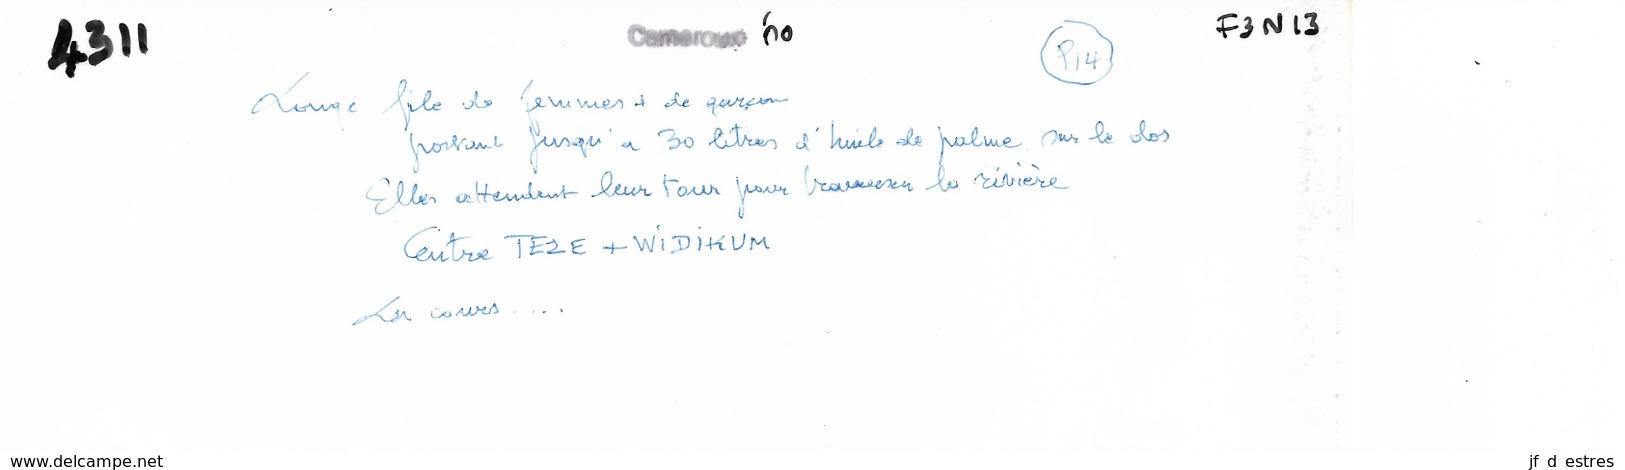 4311 Cameroun no P14 F3N13
Longe file de femmes + de garçon
portant jusqu'a 30 litres d'huile de palme sur le dos
Elles attendent leur tour pour traverser la rivière
Centre TEZE + WIDIKUM
La cours....
www.delcampe.net jf d estres